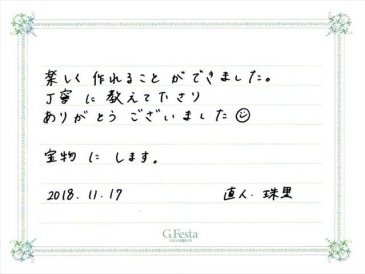 楽しく作れることができました。
丁寧に教えて下さり
ありがとうございました☺
宝物にします。
2018.11.17 直人・珠里
G.Festa
DIAMOND